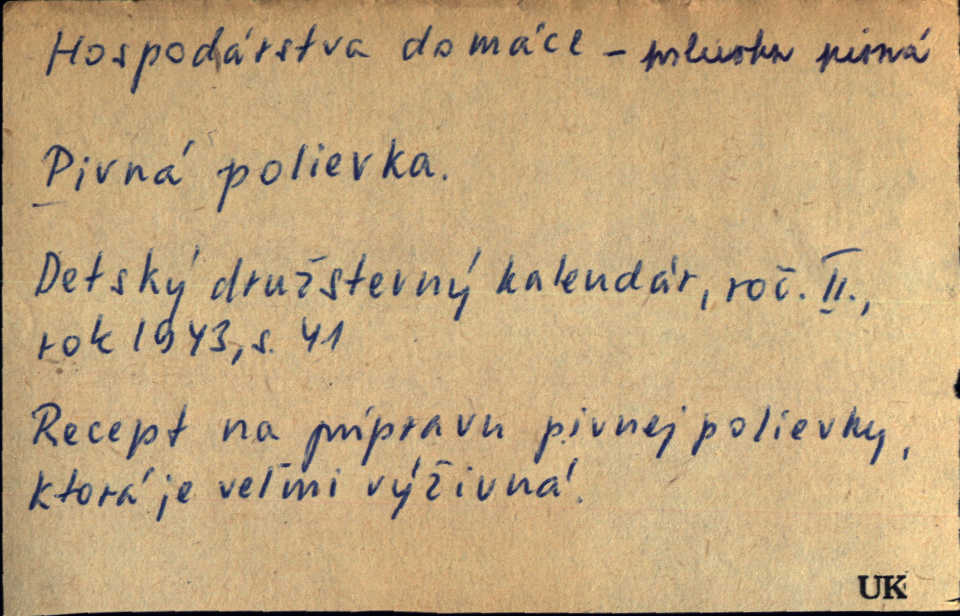 Hospodárstva domáce - polievka pivná
Pivná polievka.
Detský družstevný kalendár, roč. II.,
rok 1943, s. 41
Recept na prípravu pivnej polievky,
ktorá je veľmi výživná.
UK